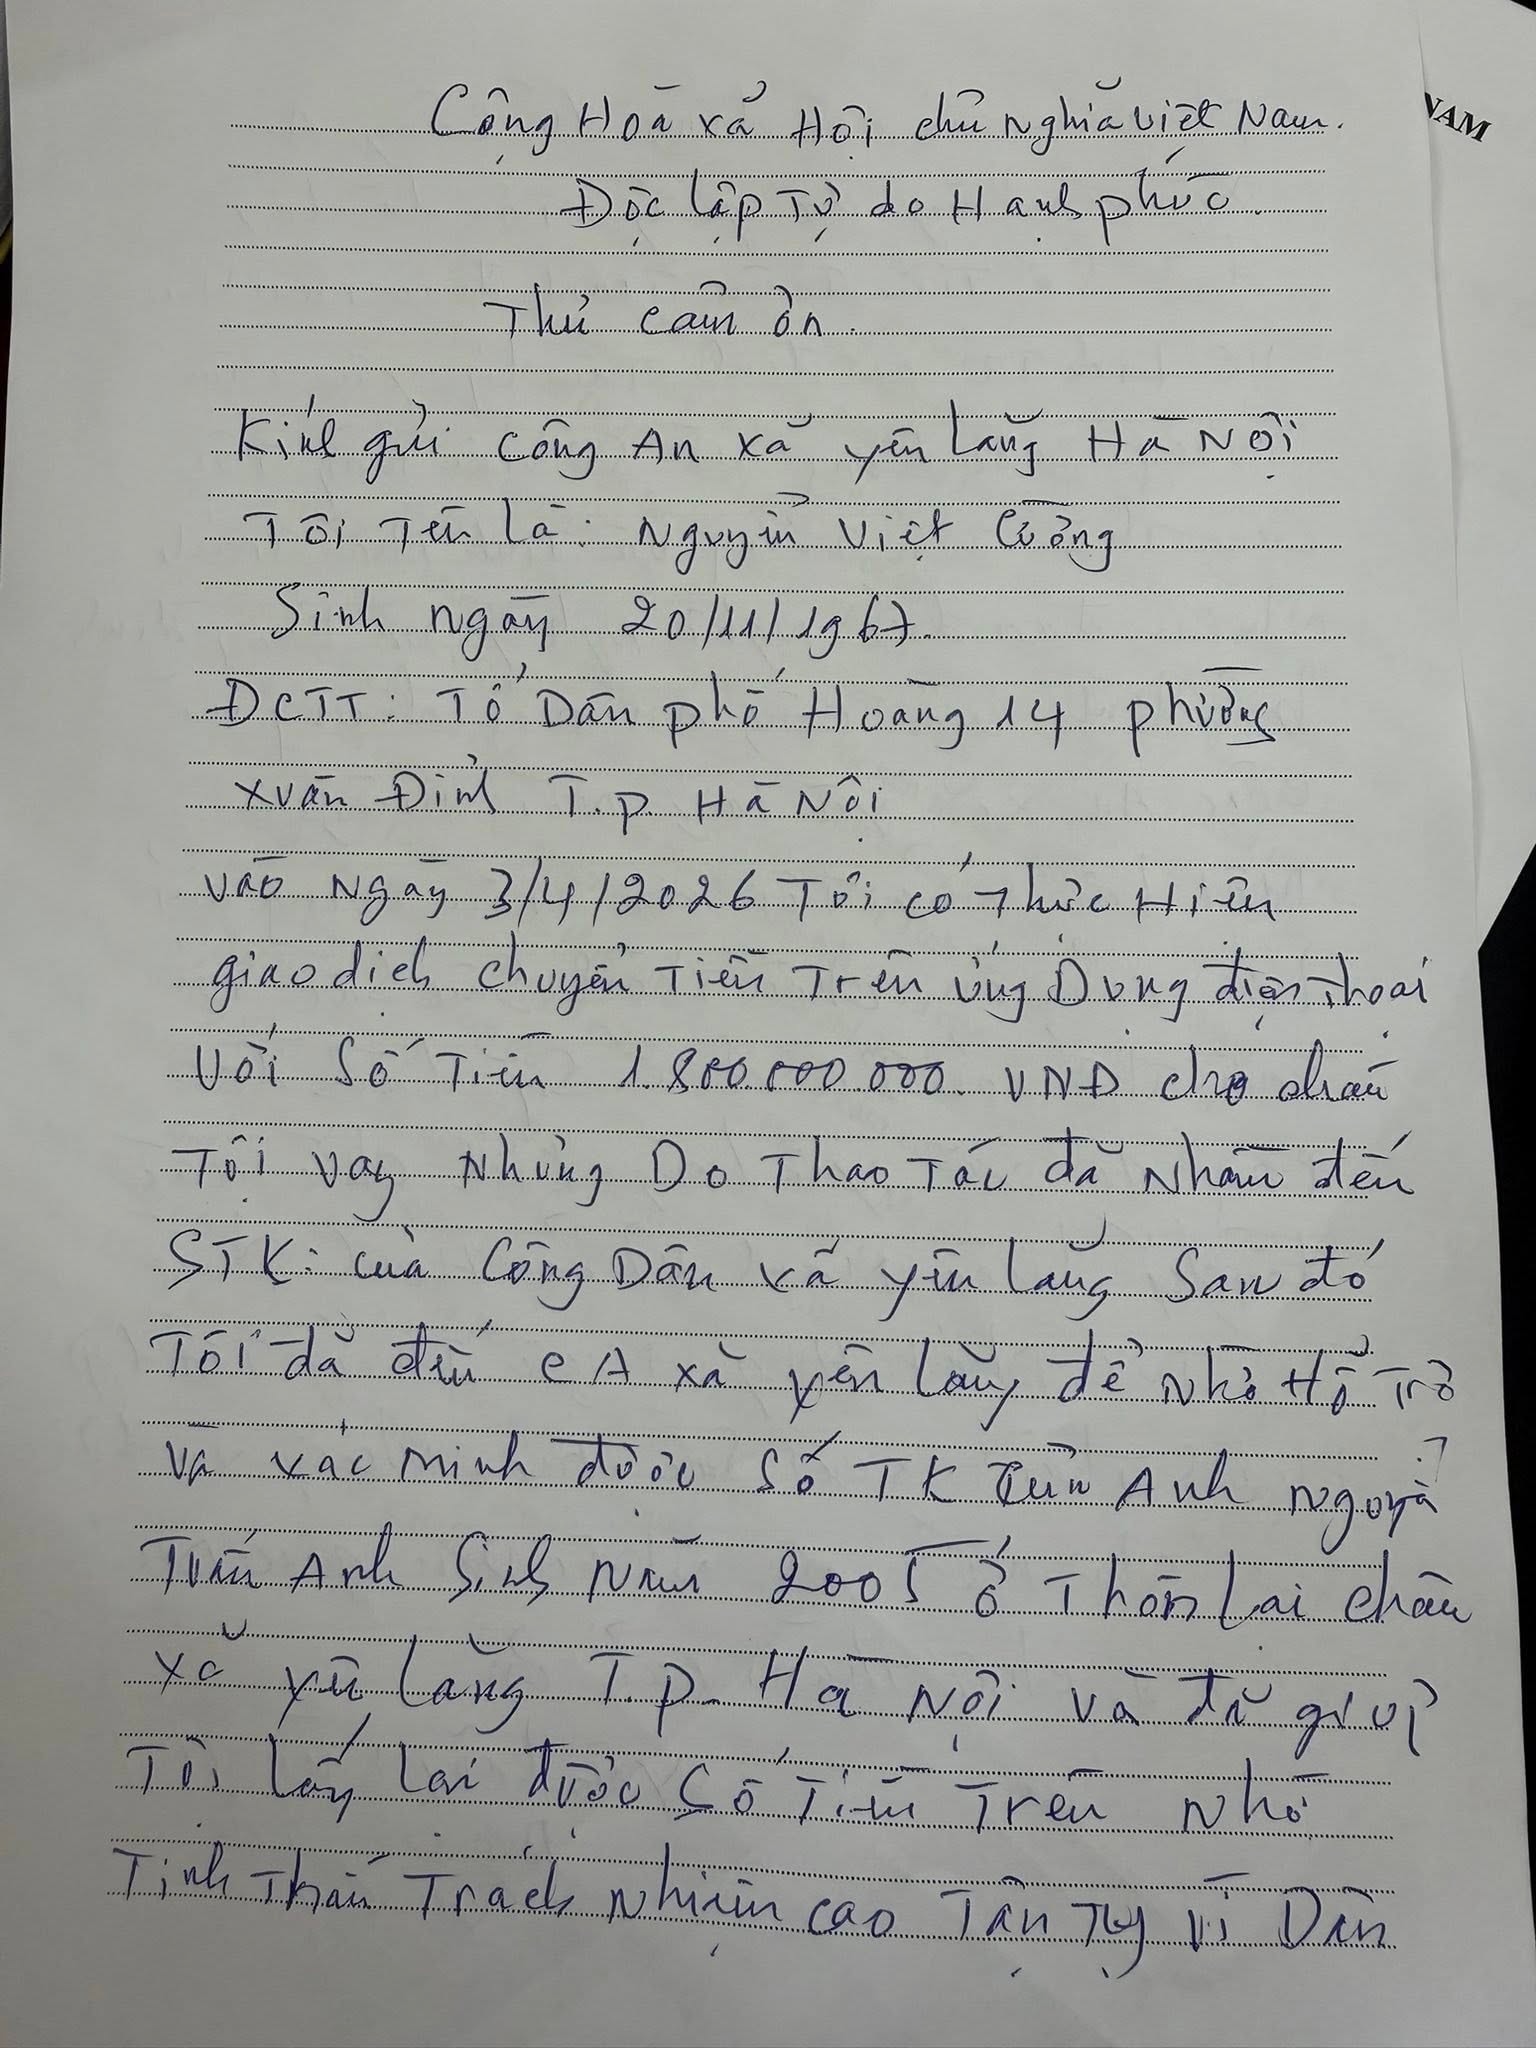 Cộng Hoà xã Hội chủ nghĩa việt Nam.
NAM
Độc lập Tự do Hạnh phúc
Thư cảm ơn.
Kính gửi công An xã yên lãng Hà Nội
Tôi Tên là: Nguyễn Việt Cường
Sinh ngày 20/11/1967.
ĐCTT: Tổ Dân phố Hoàng 14 phường
xuân Đỉnh T.p. Hà Nội
vào ngày 3/4/2026 Tôi có Thực Hiện
giao dịch chuyển Tiền Trên ứng Dụng điện Thoại
Với Số Tiền 1.800.000.000. VNĐ cho cháu
Tôi vay Nhưng Do Thao Tác đã Nhầm đến
STK: của Công Dân xã yên lãng Sau đó
Tôi đã đến CA xã yên lãng để nhờ Hỗ Trợ
và xác minh được Số TK của Anh Nguyễn
Tuấn Anh Sinh Năm 2005 ở Thôn Lai Châu
xã yên lãng T.p. Hà Nội và đã giúp
Tôi lấy lại được Số Tiền Trên Nhờ
Tinh Thần Trách Nhiệm cao Tận Tụy Vì Dân